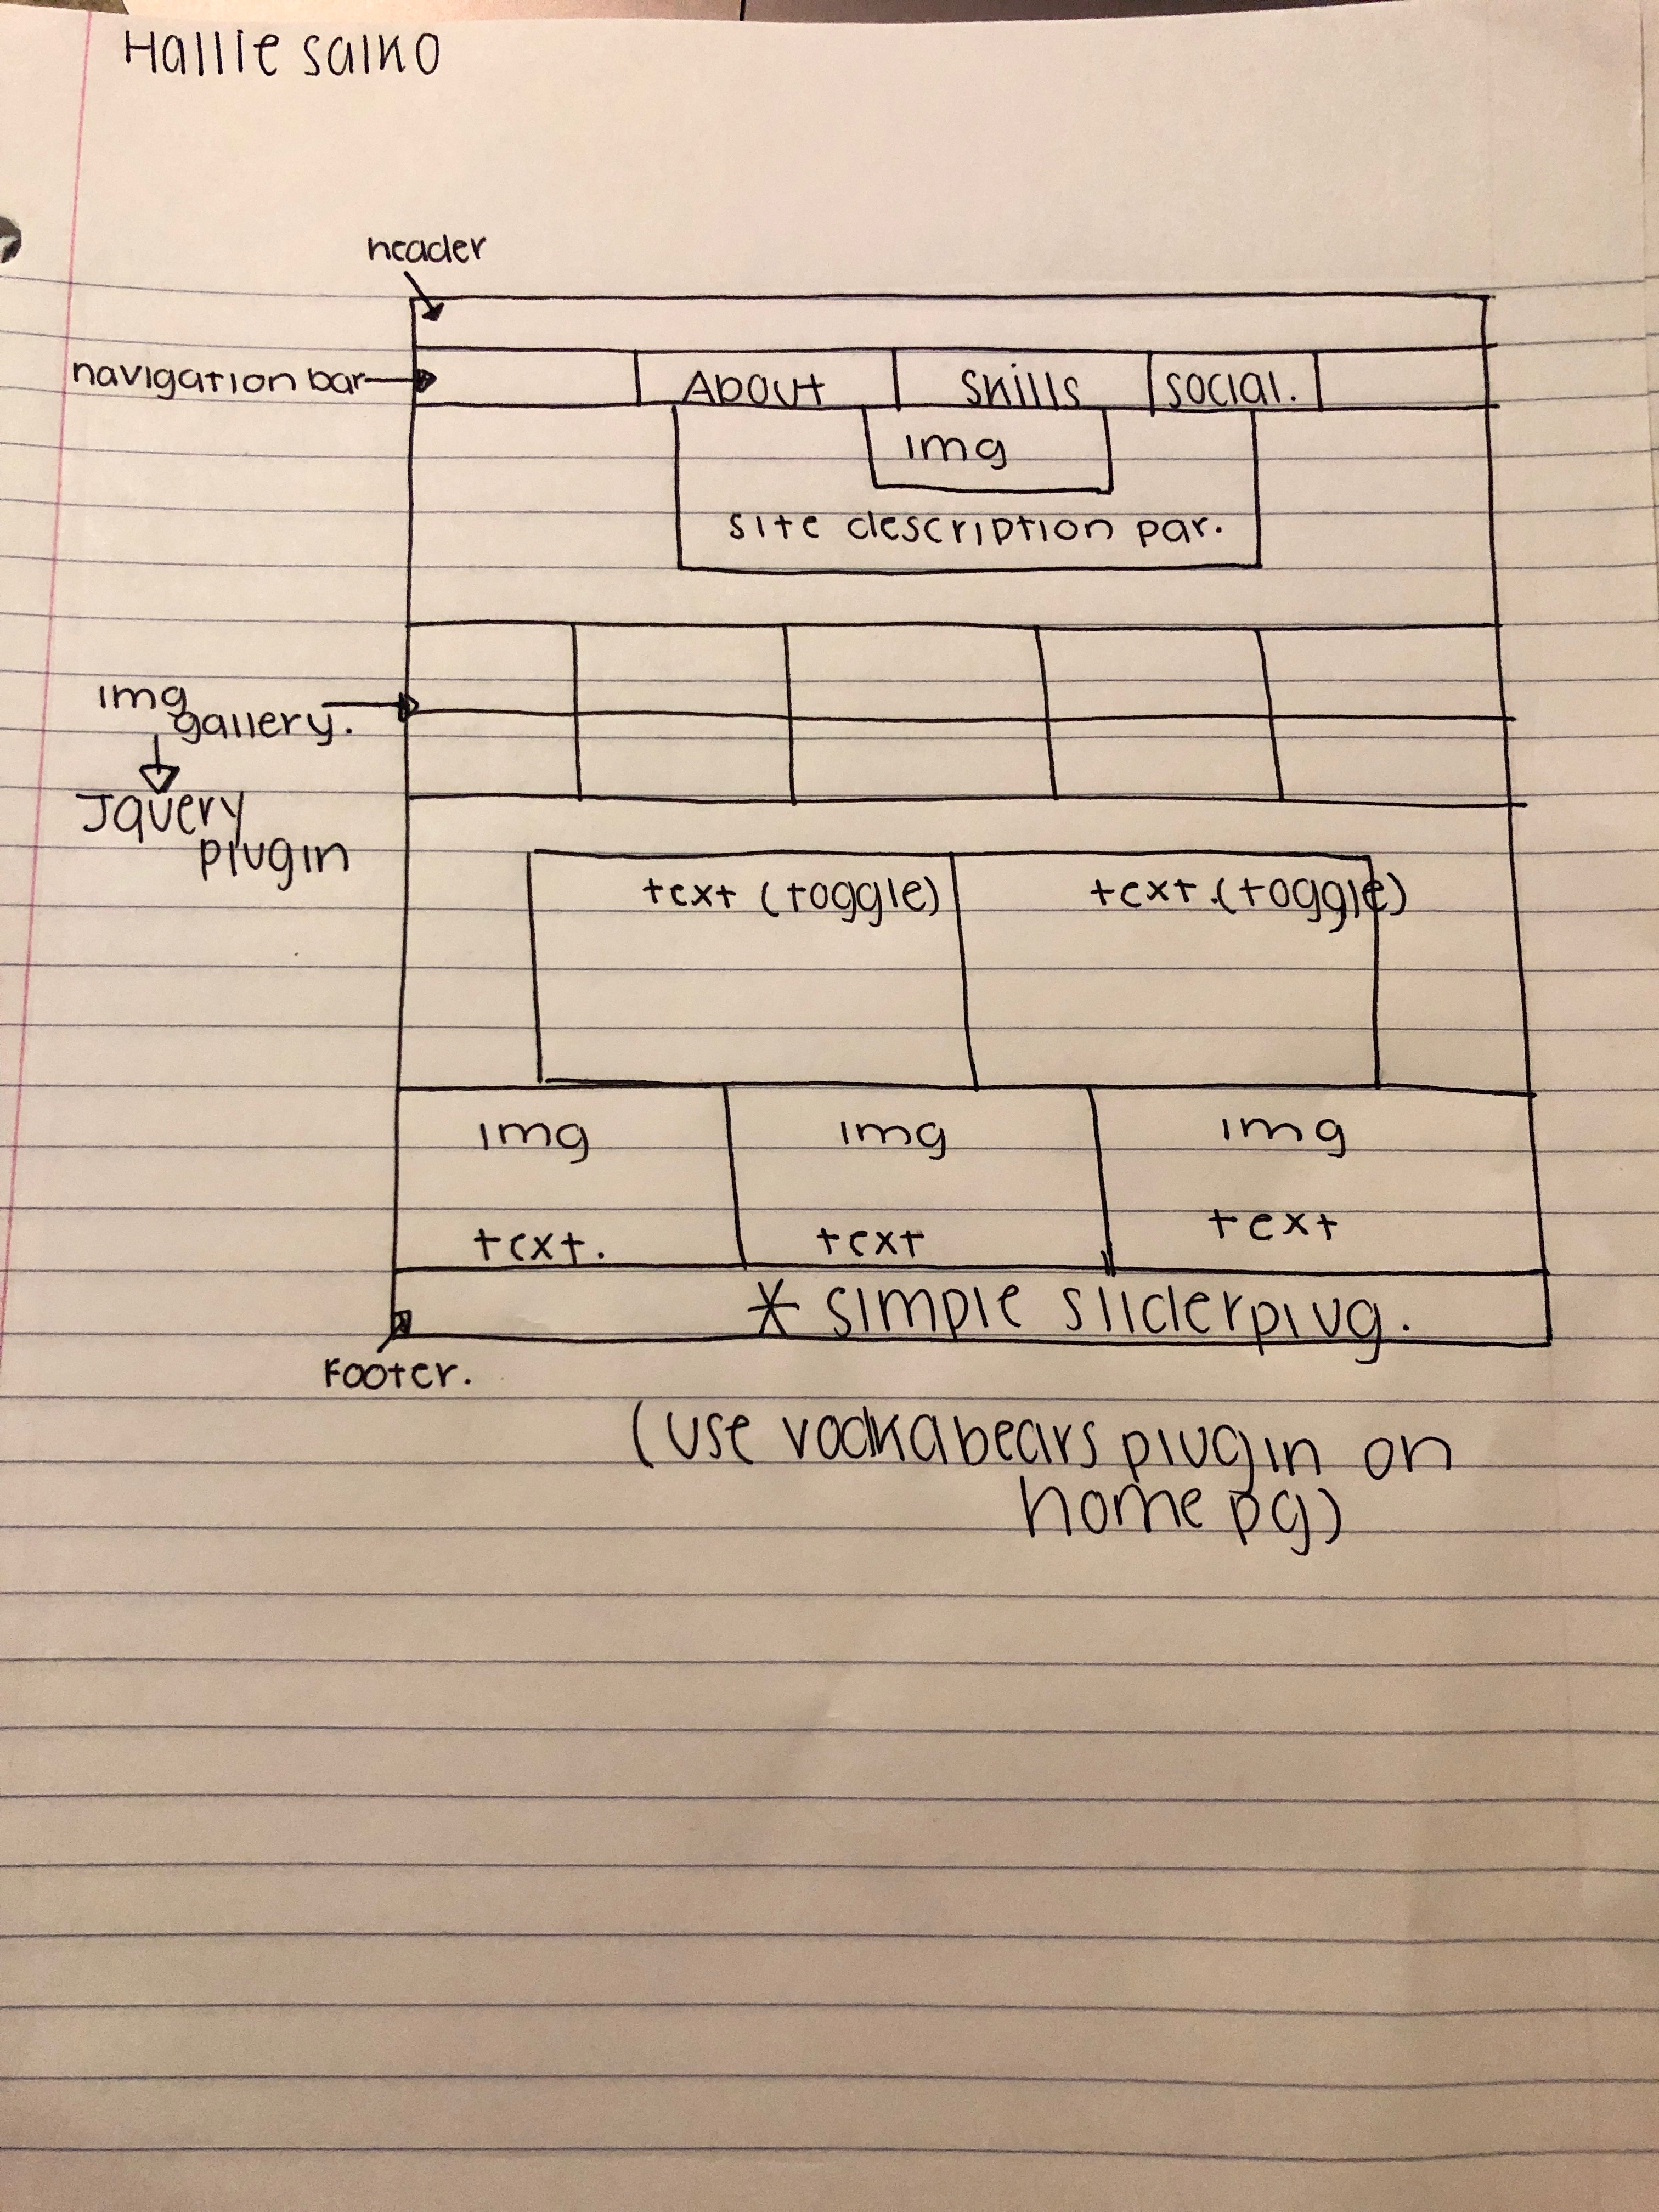 Hallie Salko
header
navigation bar
About
Skills
Social.
img
site description par.
img
gallery.
Jquery
plugin
text (toggle)
text.(toggle)
img
img
img
text.
text
text
* simple sliderplug.
Footer.
(use vodkabears plugin on
home pg)